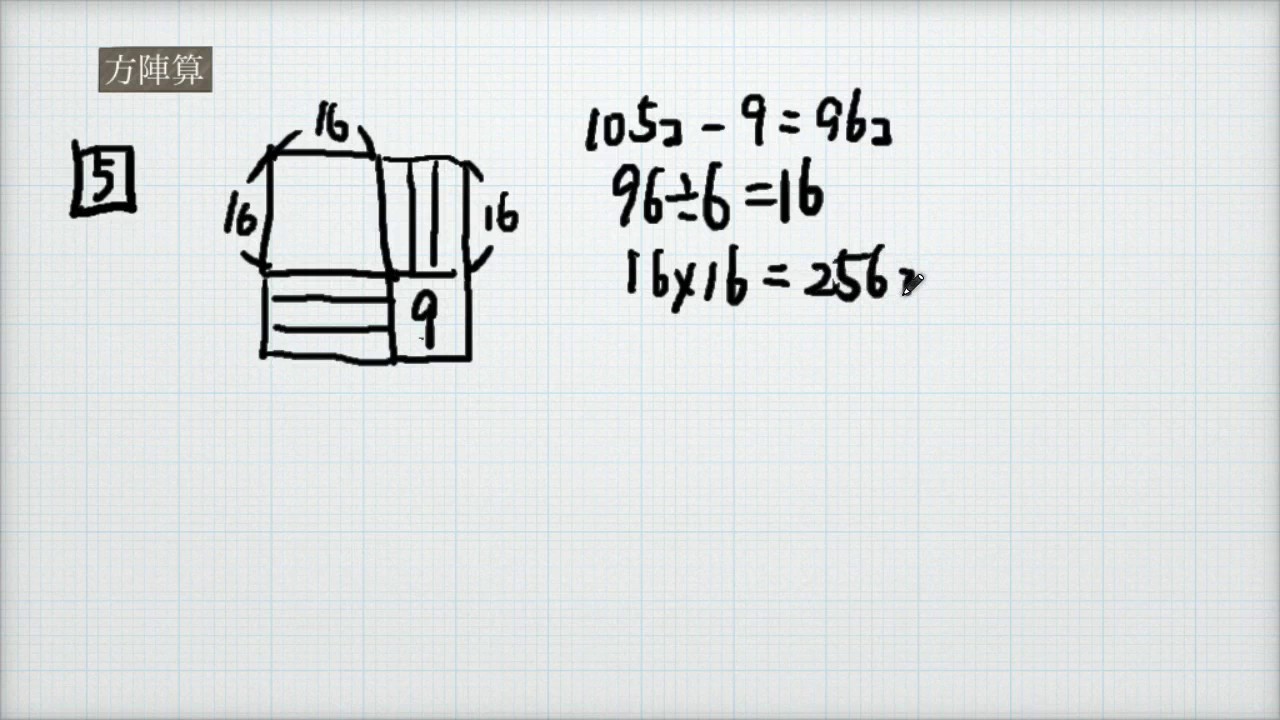 方陣算
5
16
16
16
9
105コ - 9 = 96コ
96÷6=16
16×16=256コ